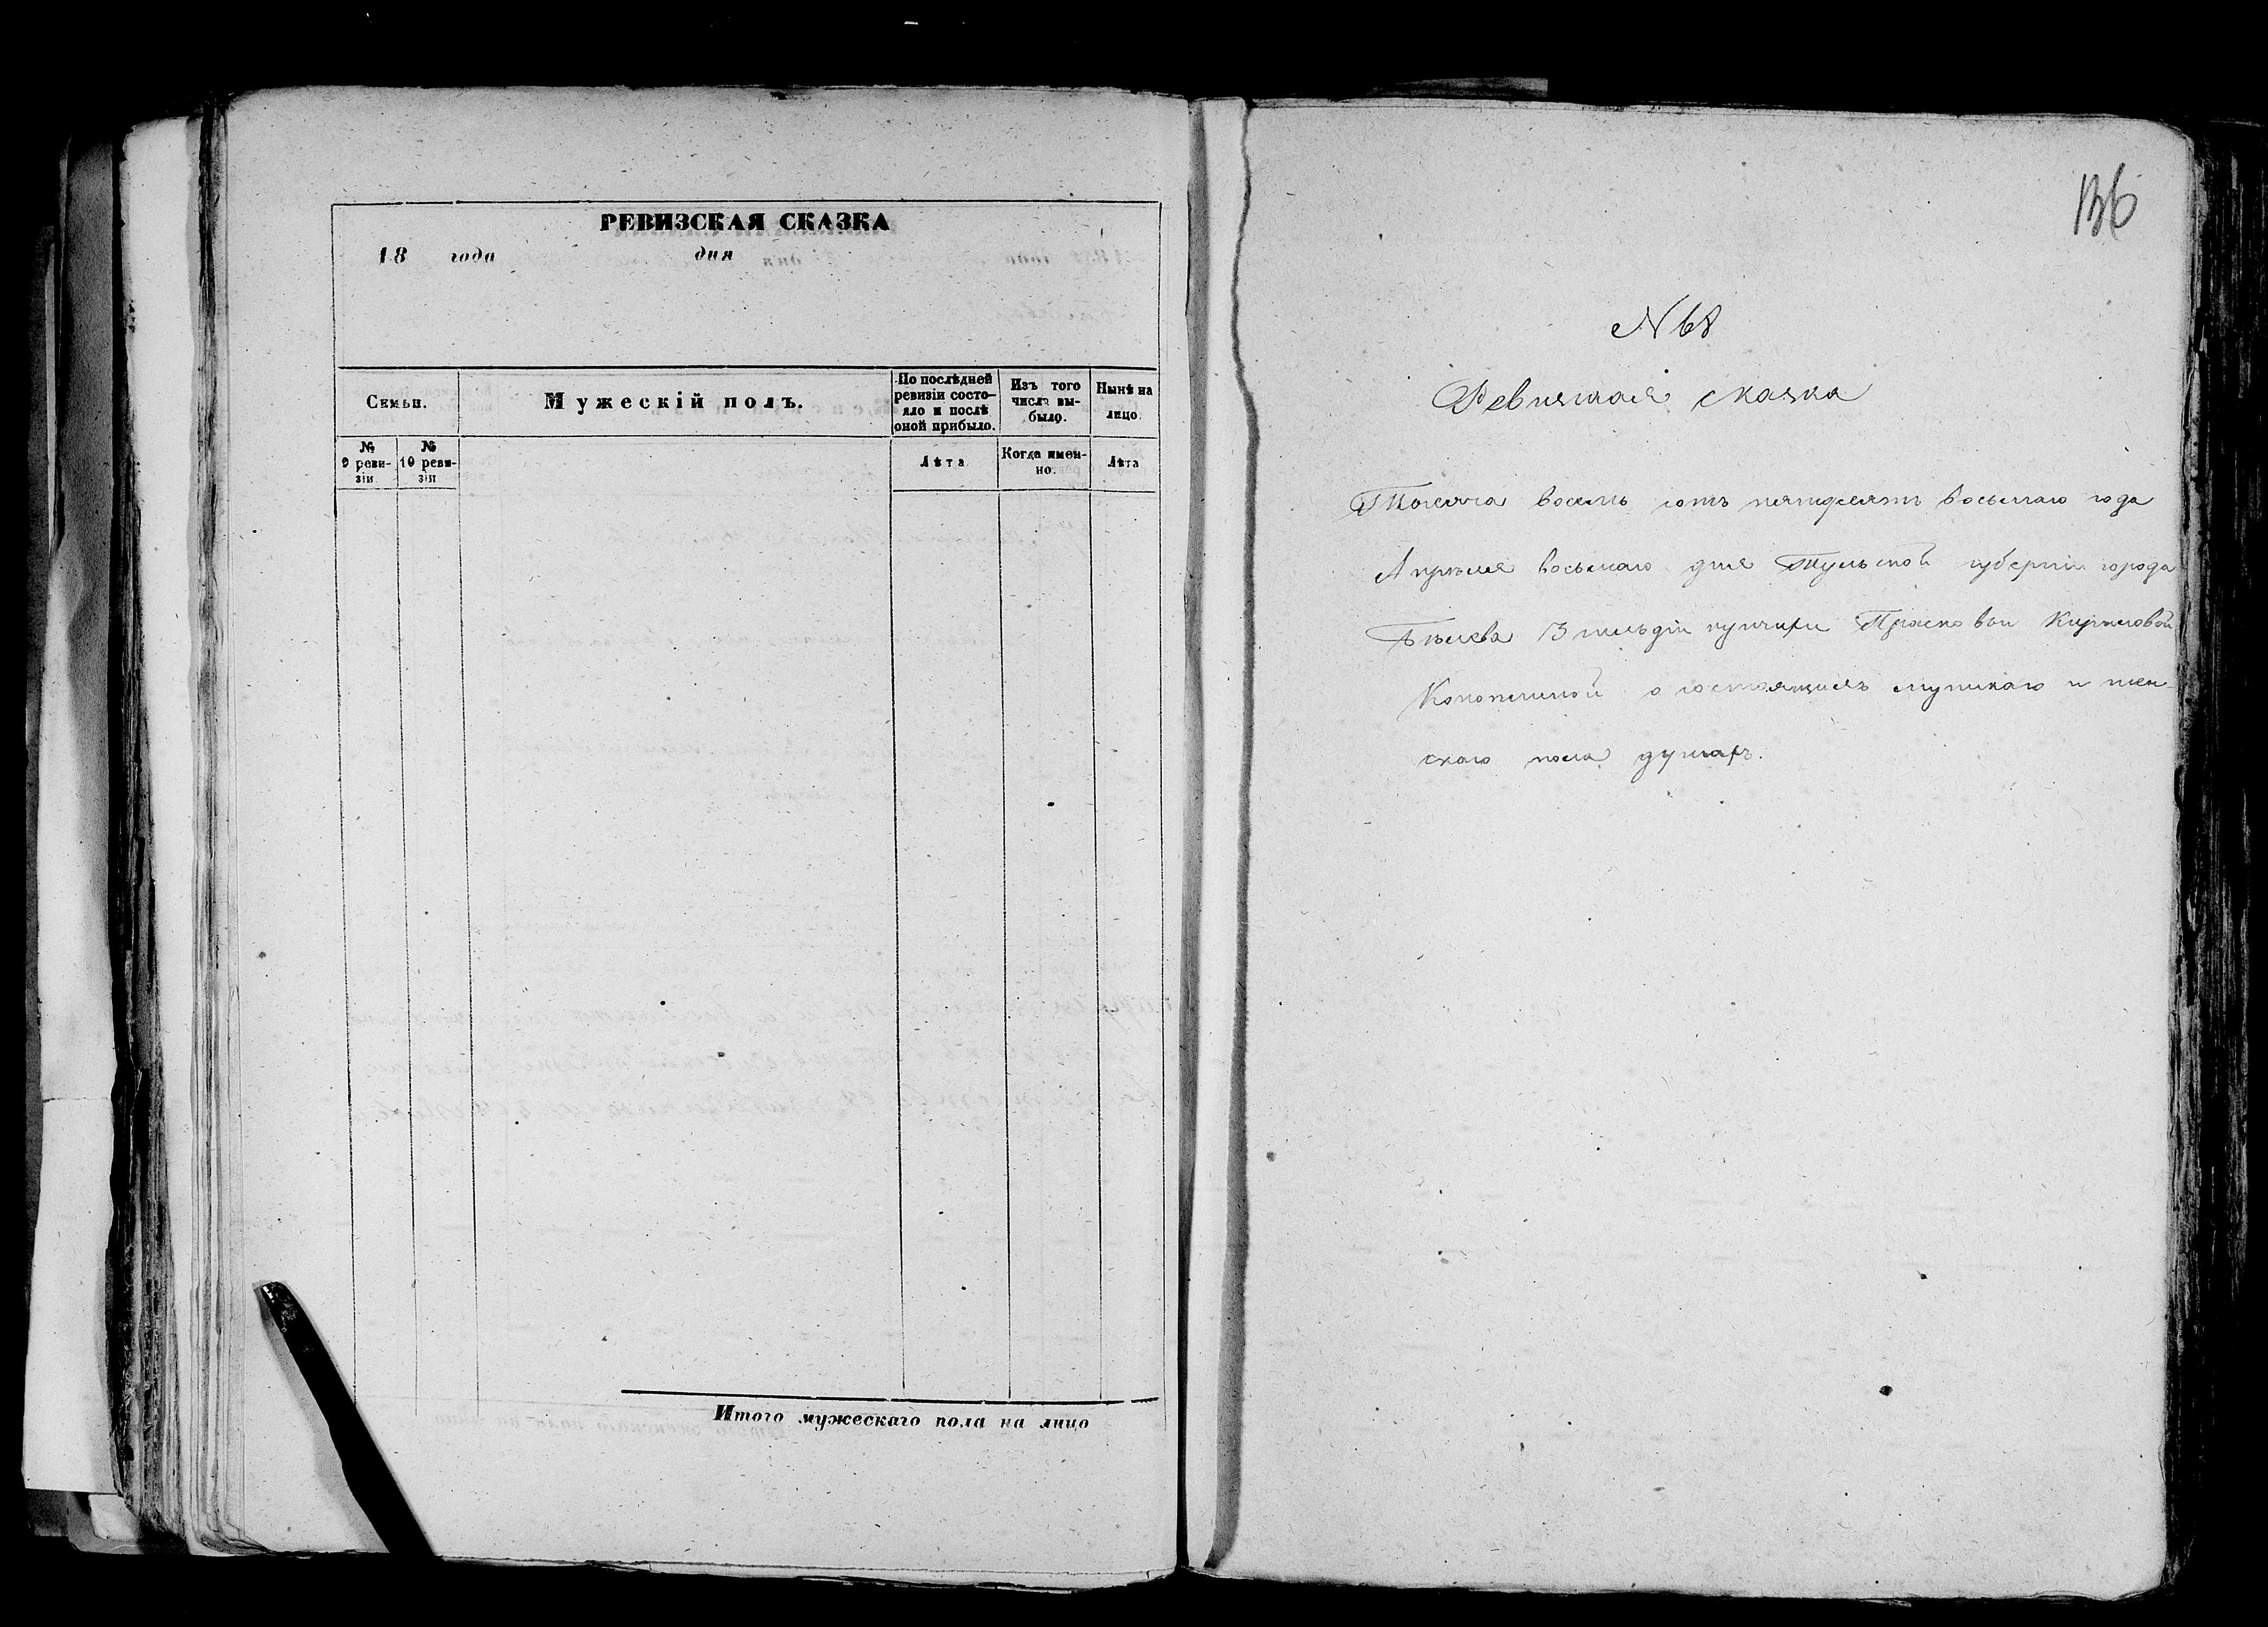 РЕВИЗСКАЯ СКАЗКА
18 года дня
Семьи.
Мужескій полъ.
По послѣдней
ревизіи состо-
яло и послѣ
оной прибыло.
Изъ того
числа вы-
было.
Нынѣ на
лицо.
№
9 реви-
зіи
№
10 реви-
зіи
Лѣта
Когда имен-
но.
Лѣта
Итого мужескаго пола на лицо
136
N 68
Ревизская сказка
Тысяча восемь сотъ пятдесятъ восьмаго года
Апрѣля восьмаго дня Тульской губерніи города
Бѣлева 3 гильдіи купчихи Прасковьи Кириловой
о состоящихъ мужскаго и жен-
скаго пола душахъ.